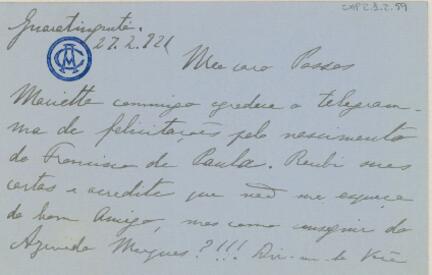 CMP 2.1.2.59
Guaratinguetá.
27.2.921
Meu caro Passos
Marietta commigo agradece o telegram-
ma de felicitações pelo nascimento
do Francisco de Paula. Recebi suas
cartas e acredite que não me esqueço
do bom Amigo, mas como conseguir do
Azevedo Marques?!!! Diz-se